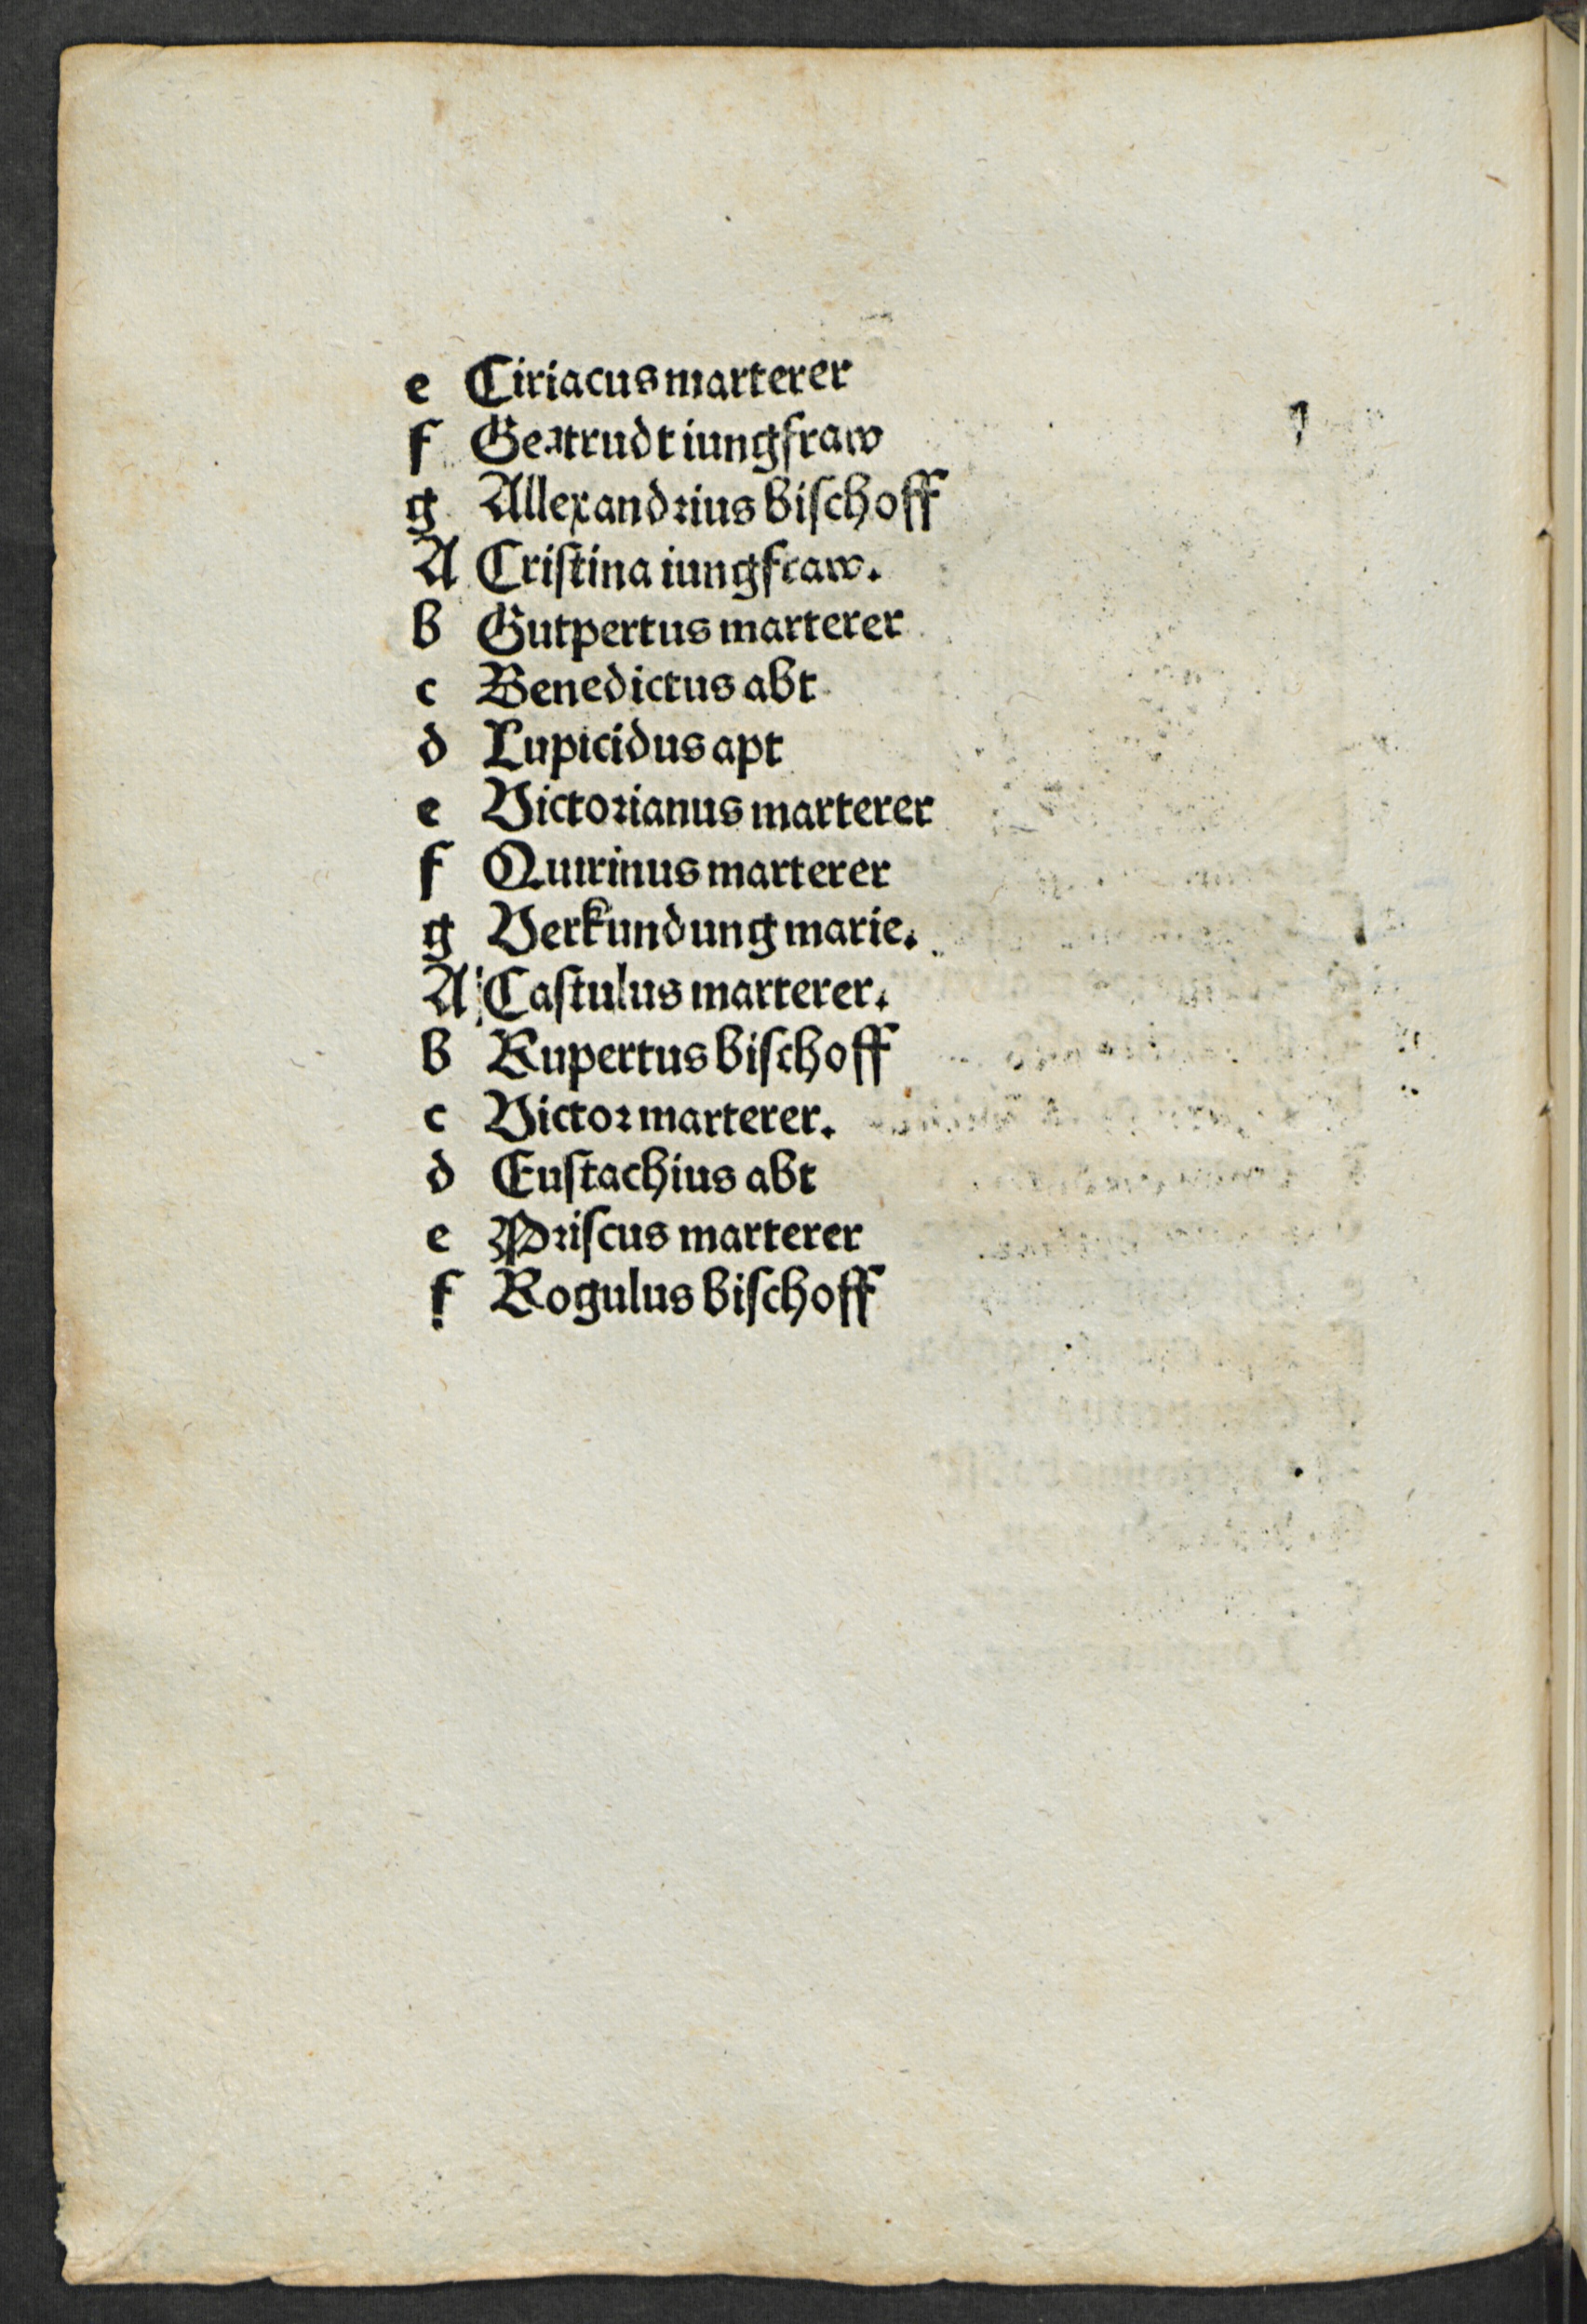 e Ciriacus marterer
f Gertrudt iungfraw
g Allexandrius bischoff
A Cristina iungfraw.
b Gutpertus marterer
c Benedictus abt
d Lupicidus apt
e Victorianus marterer
f Quirinus marterer
g Verkundung marie.
A Castulus marterer.
b Rupertus bischoff
c Victor marterer.
d Eustachius abt
e Priscus marterer
f Rogulus bischoff